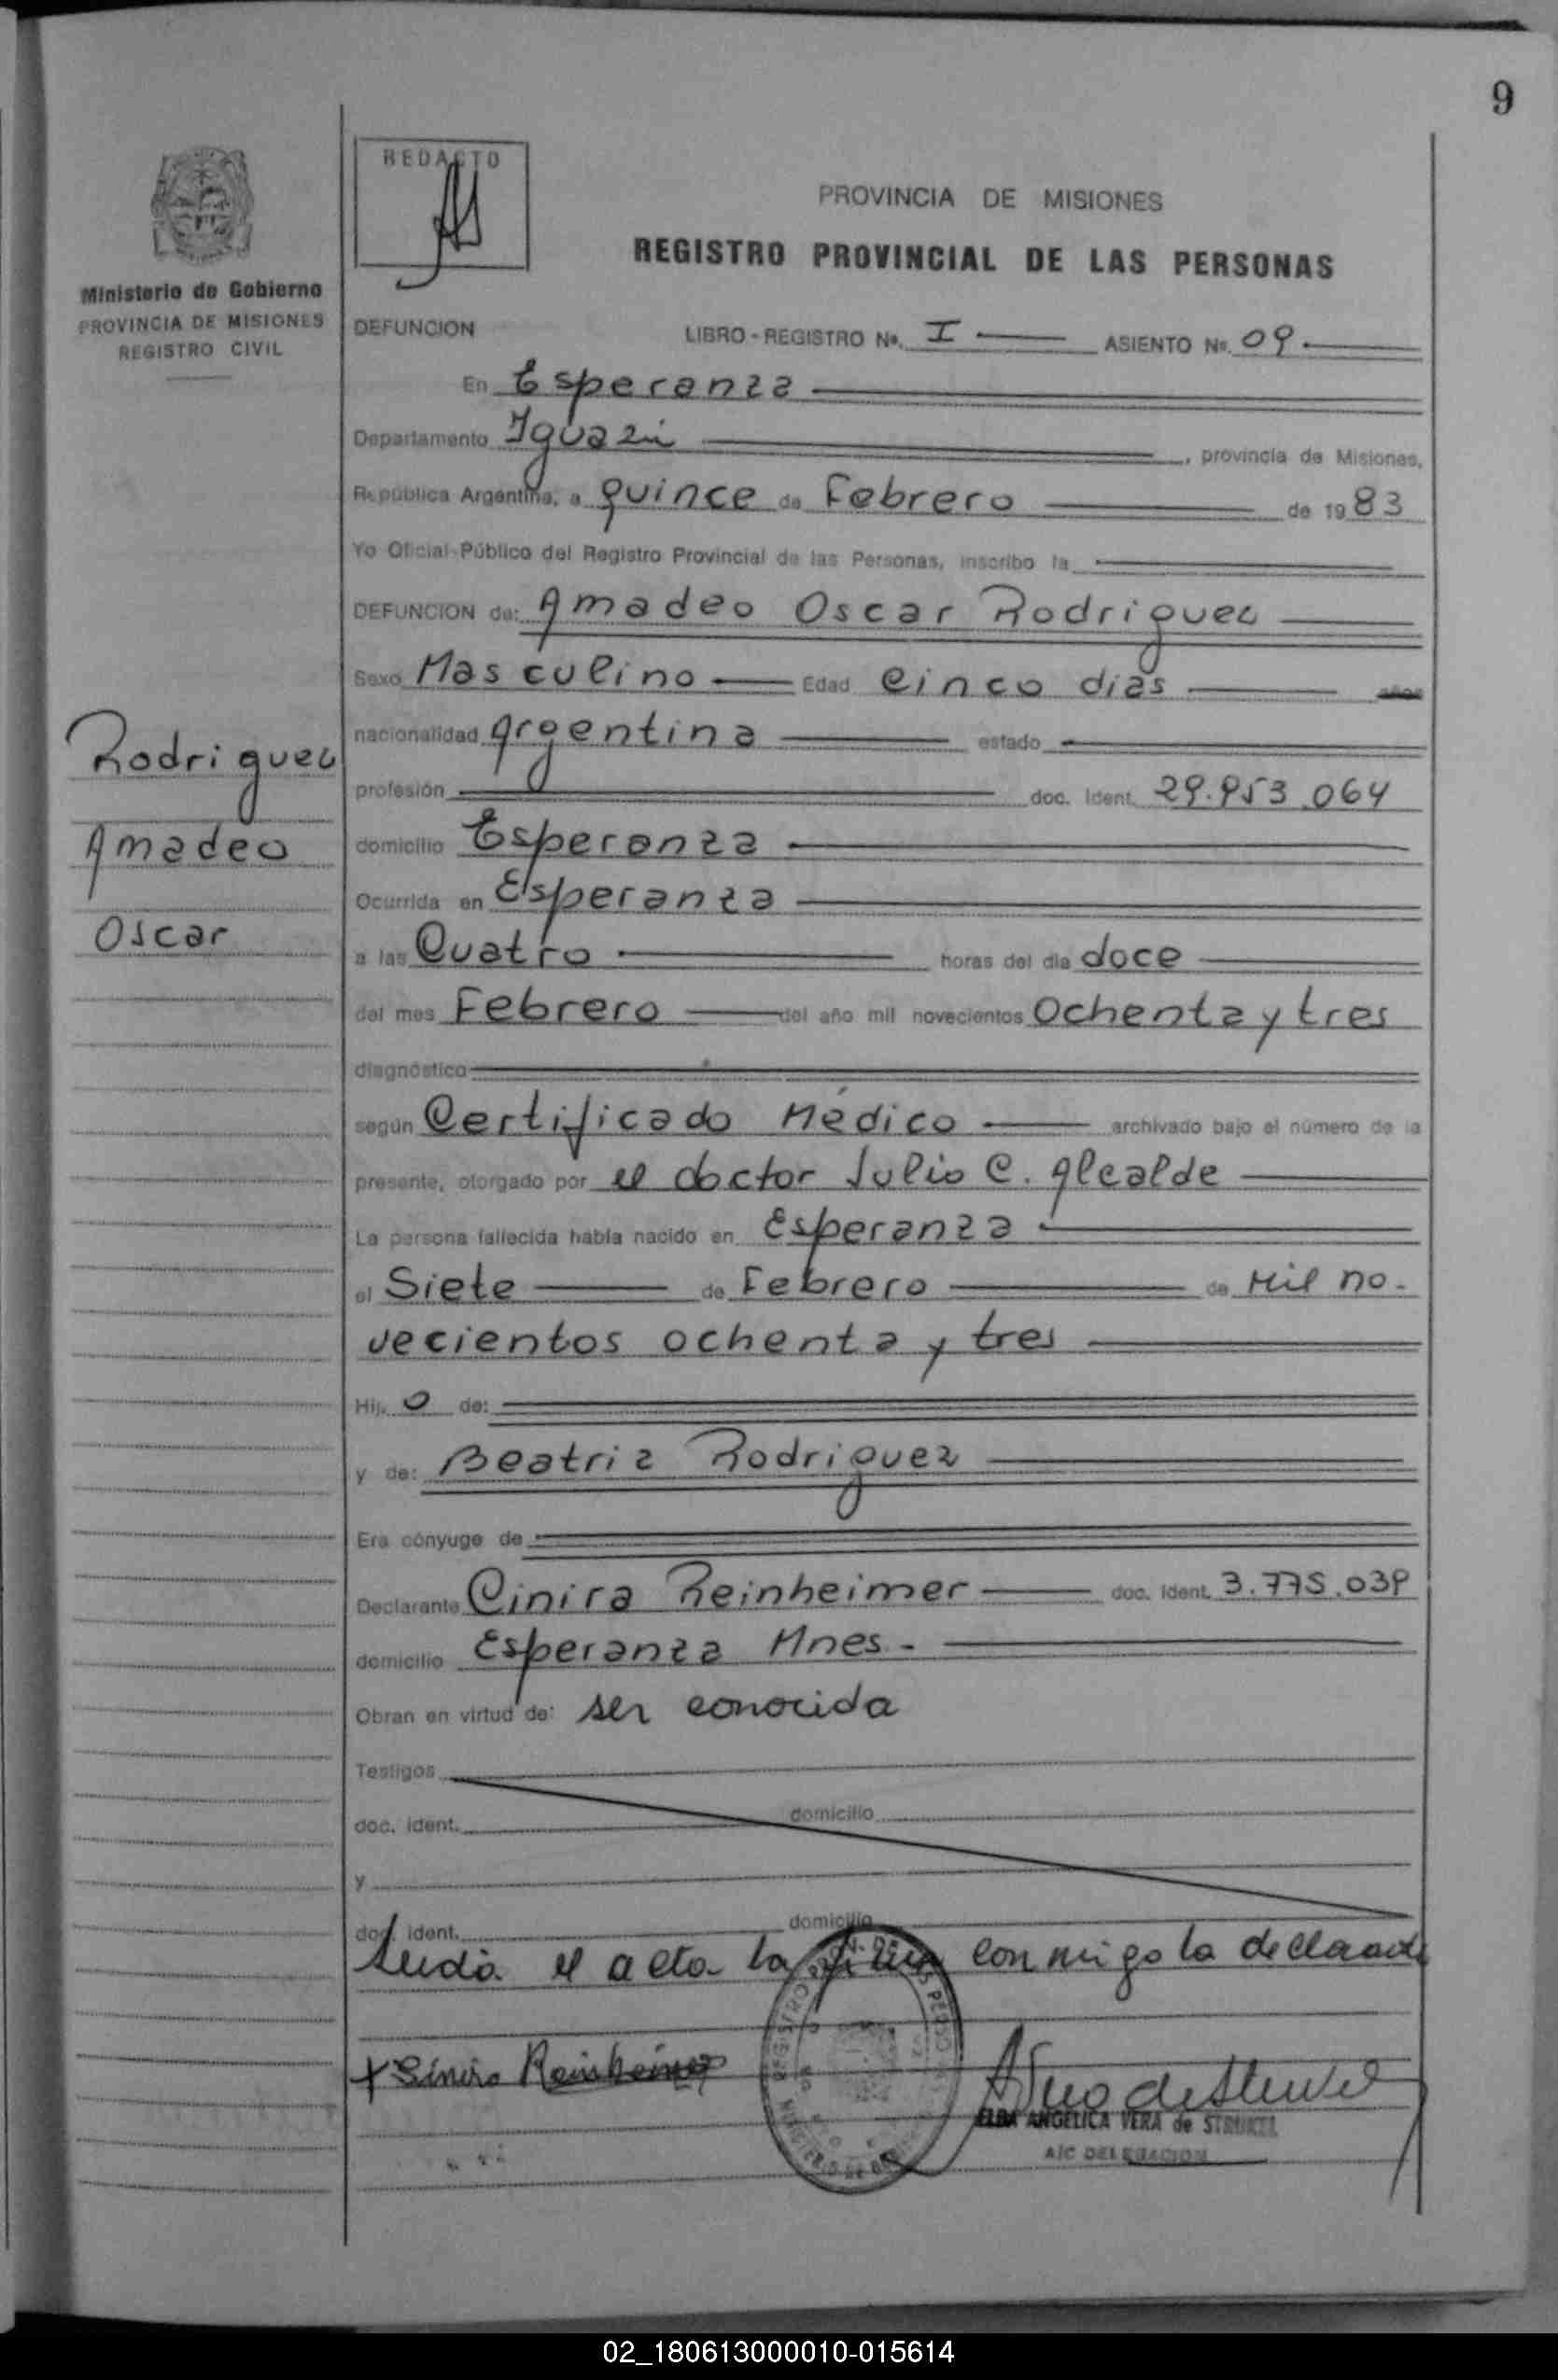 9
REDACTO
PROVINCIA DE MISIONES
REGISTRO PROVINCIAL DE LAS PERSONAS
Ministerio de Gobierno
PROVINCIA DE MISIONES
REGISTRO CIVIL
DEFUNCION LIBRO - REGISTRO Nº. I ASIENTO Nº. 09.
En Esperanza
Departamento Iguazú, provincia de Misiones,
República Argentina, a quince de Febrero de 1983
Yo Oficial Público del Registro Provincial de las Personas, inscribo la
DEFUNCION de: Amadeo Oscar Rodriguez
Sexo Masculino Edad Cinco dias años
nacionalidad Argentina estado
profesión doc. Ident. 29.953.064
domicilio Esperanza
Ocurrida en Esperanza
a las Cuatro horas del día doce
del mes Febrero del año mil novecientos Ochenta y tres
diagnóstico
según Certificado Médico archivado bajo el número de la
presente, otorgado por el doctor Julio C. Alcalde
La persona fallecida había nacido en Esperanza
el Siete de Febrero de Mil no-
vecientos ochenta y tres
Hij. o de:
y de: Beatriz Rodriguez
Era cónyuge de
Declarante Cinira Reinheimer doc. Ident. 3.775.039
domicilio Esperanza Mnes.-
Obran en virtud de: ser conocida
Testigos
doc. ident. domicilio
y
doc. ident. domicilio
Leida el acta la firma conmigo la declarante
x Sinira Reinheimer
ELBA ANGELICA VERA de STRUKEL
A/C DELEGACION
Rodriguez
Amadeo
Oscar
02_180613000010-015614